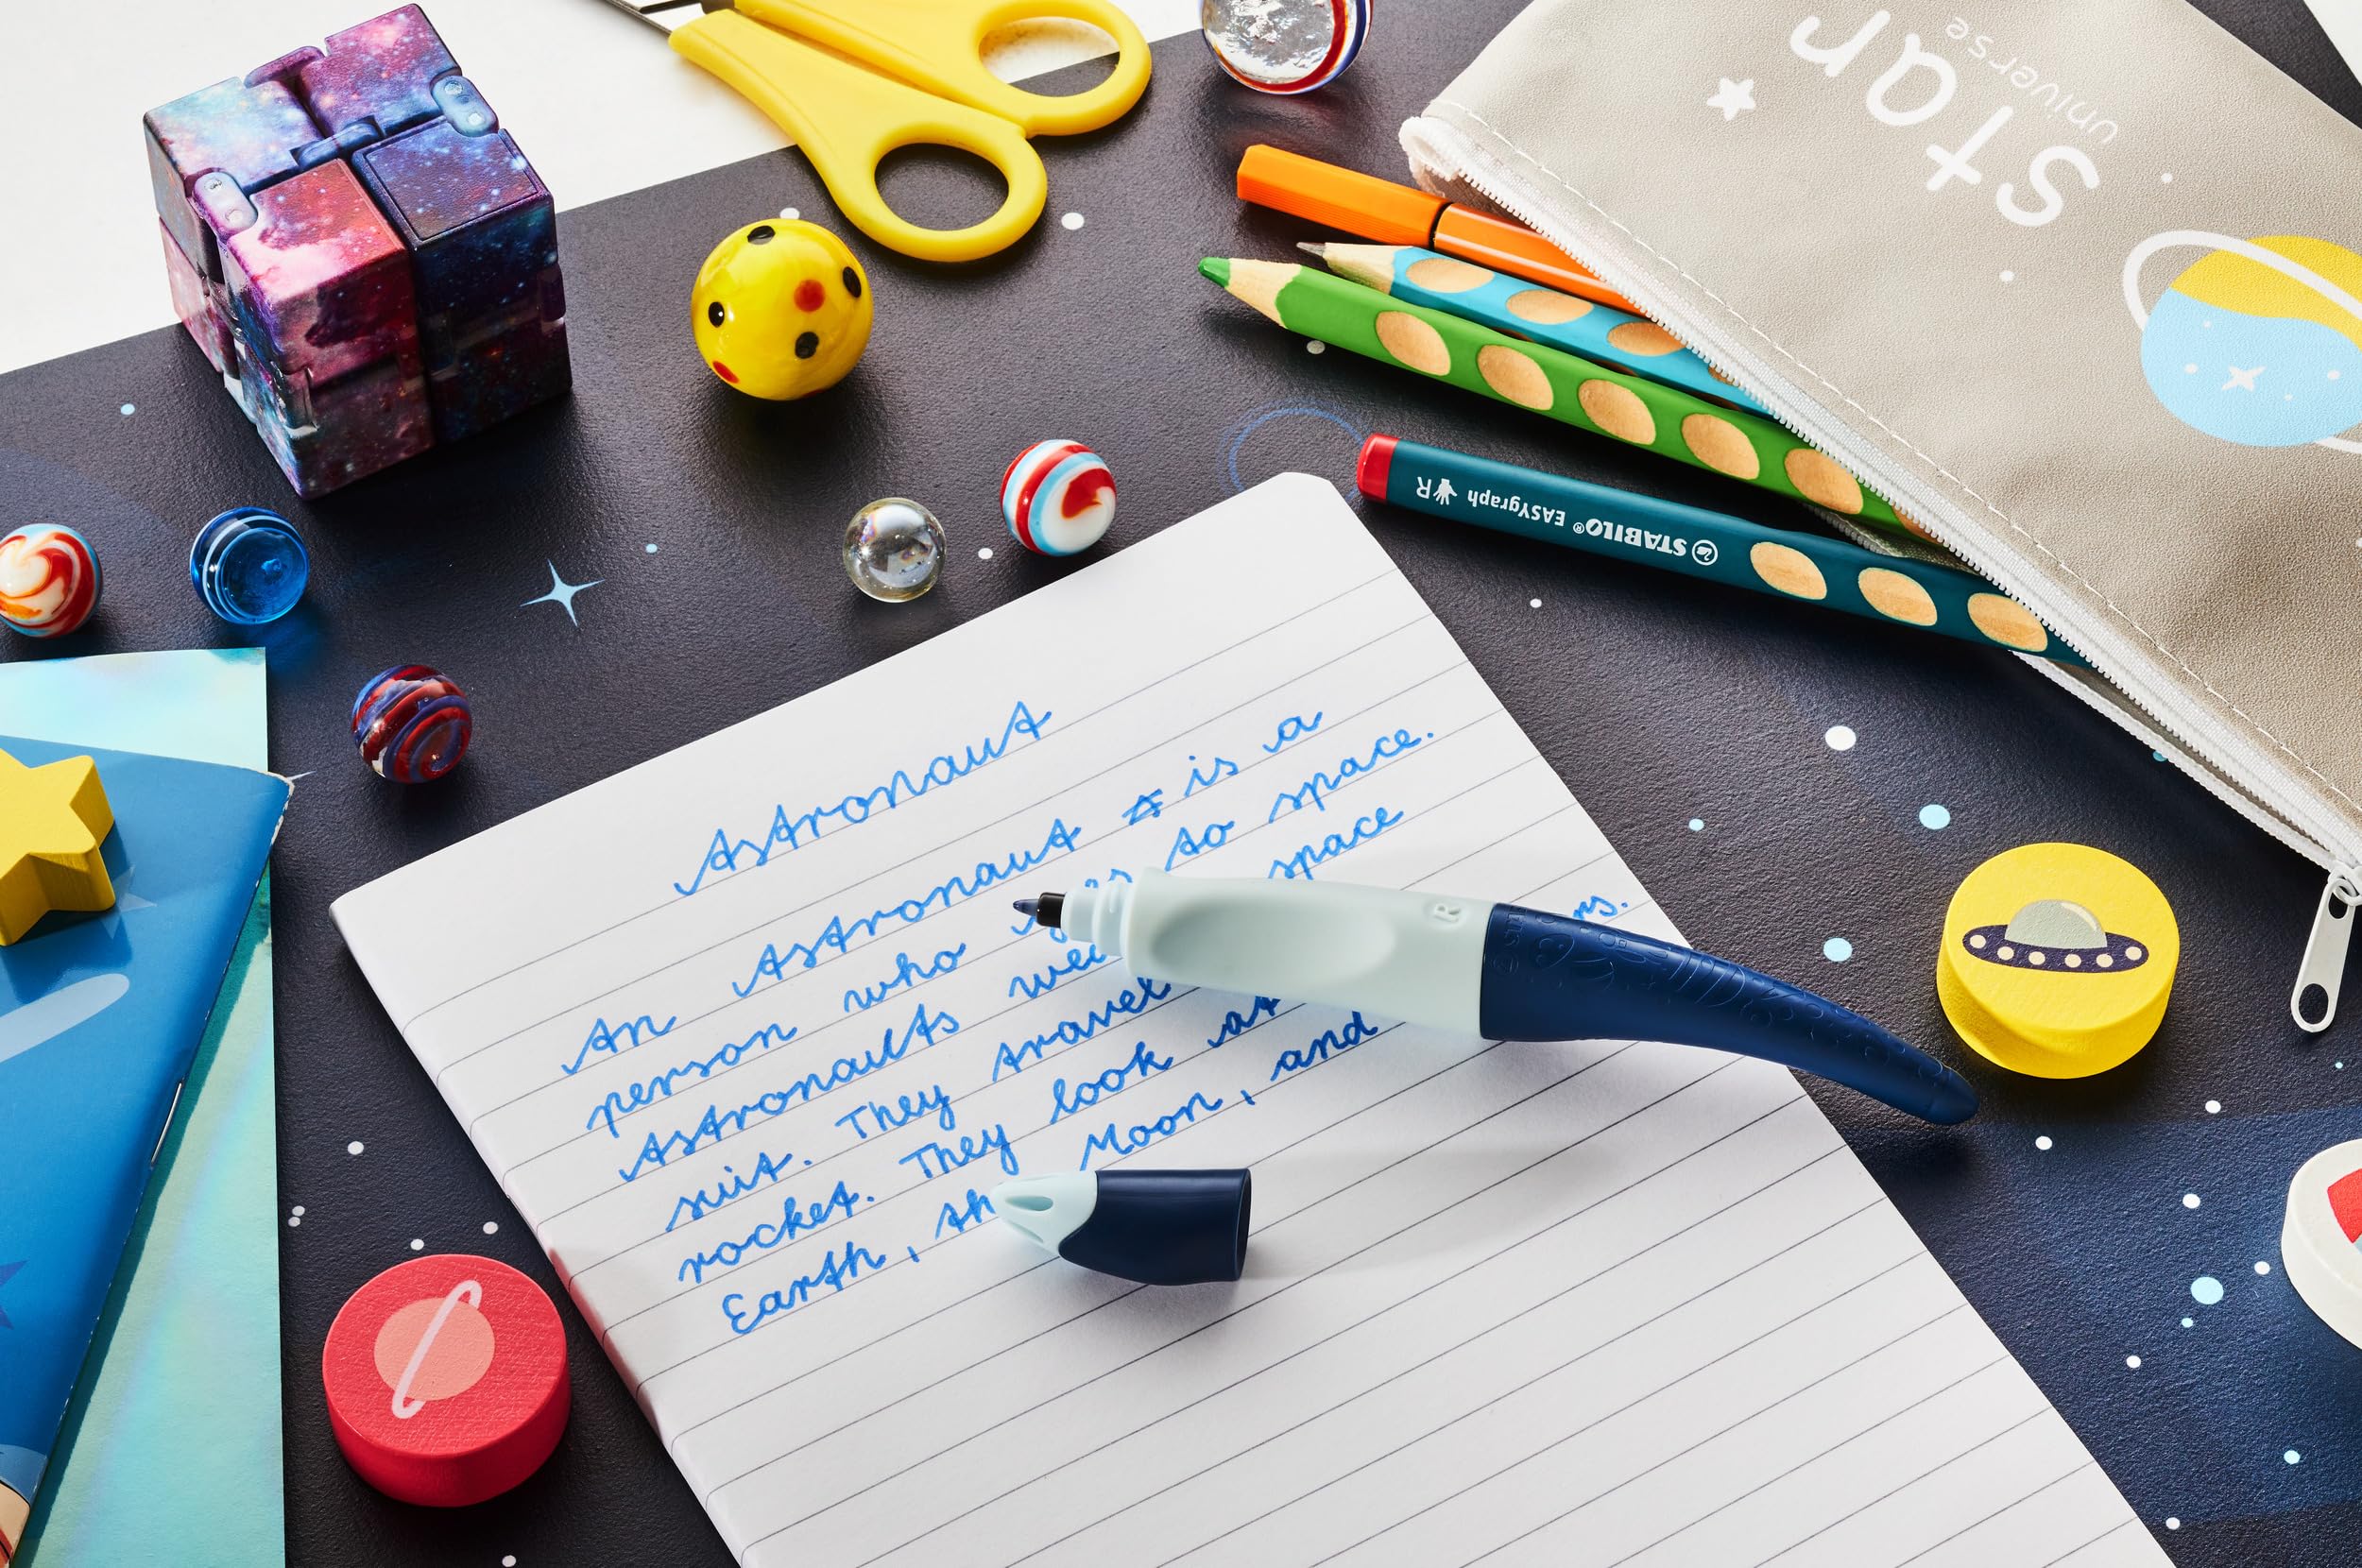 star
universe
STABILO® EASYgraph R
Astronaut
An Astronaut is a
person who to space.
Astronauts space
suit. They travel
rocket. They look at
Earth, Moon, and
R